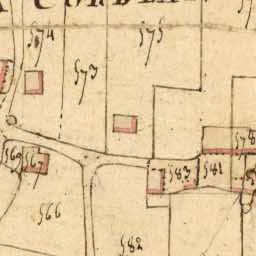 574
575
573
578
569 567
583 581
566
582